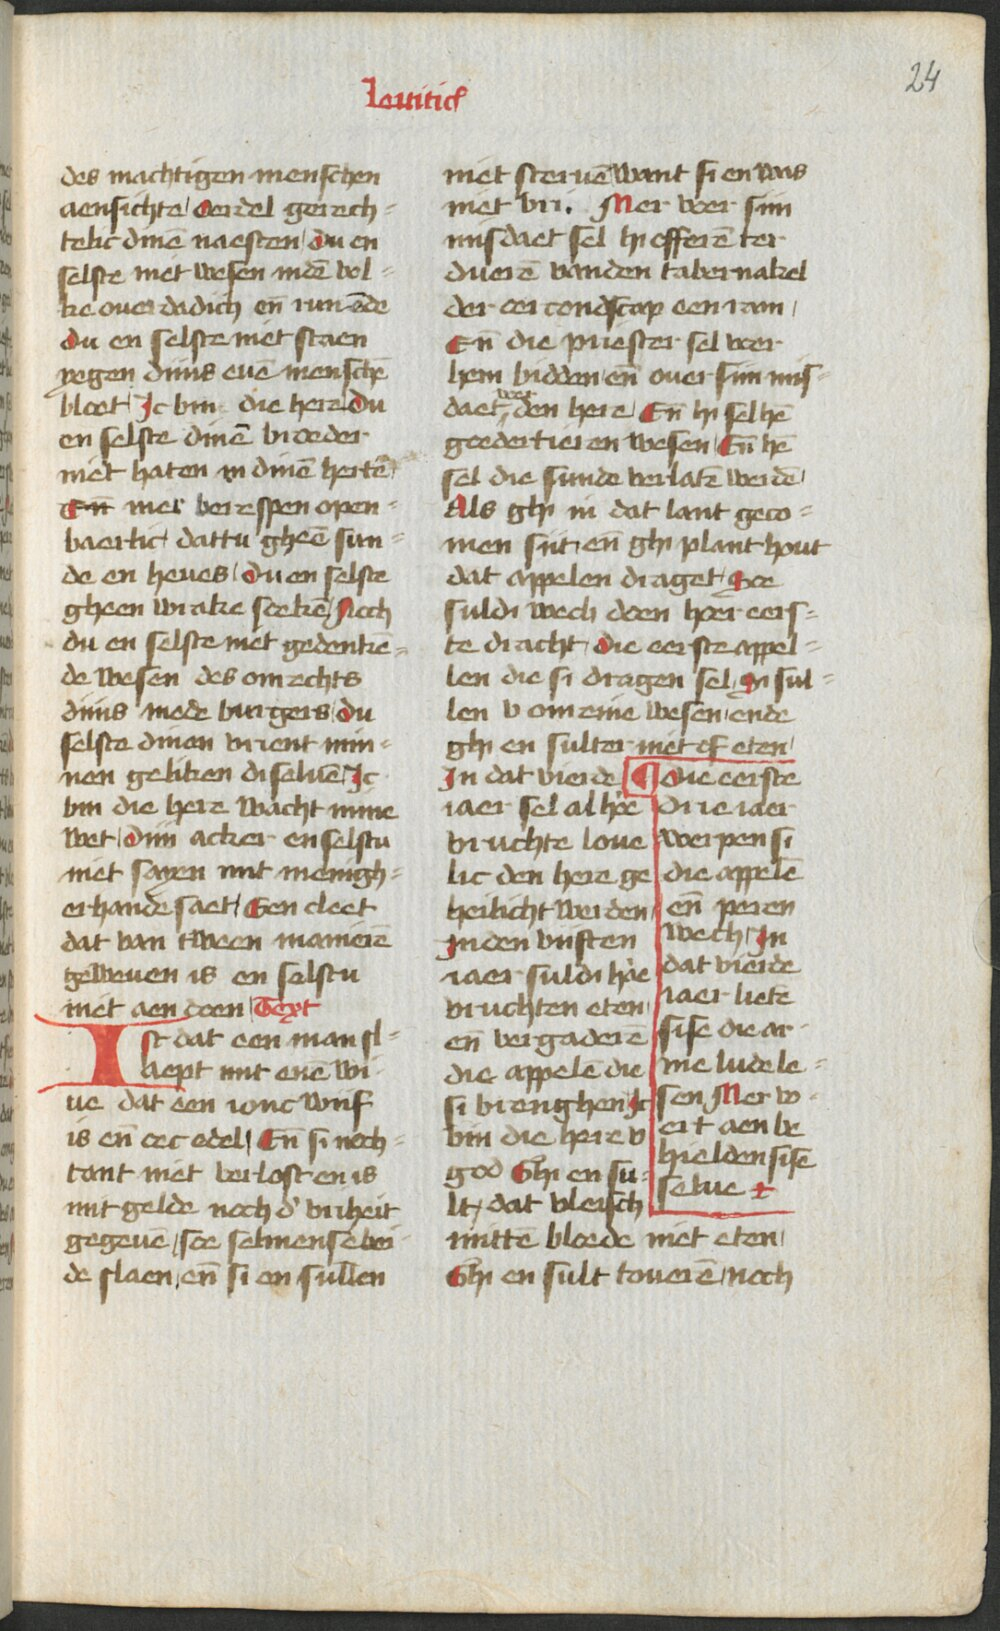 24
Leuiticus
des machtigen menschen
aensichte / Oerdel gerech=
telic dinē naesten / Du en
selste niet wesen indē vol=
ke ouerdadich en̄ runēde
Du en selste niet staen
yegen dijns euē menschē
bloet / Ic bin die here / Du
en selste dinē brueder
niet haten in dinē hertē
En̄ mer berespen open=
baerlic dattu gheē sun=
de en heues / Du en selste
gheen wrake soekē / Noch
du en selste niet gedenkē=
de wesen des onrechts
dijns mede burgers / Du
selste dinen vrient min=
nen geliken di seluē / Ic
bin die here Wacht mine
wet / Dijn acker en selstu
niet sayen mit menigh=
erhande saet / Een cleet
dat van tween manierē
geweuen is en selstu
niet aen doen / Text
Ist dat een man sl=
aept mit enē wi=
ue dat een ionc wijf
is en̄ oec edel / En̄ si noch=
tant niet verlost en is
mit gelde noch d' vriheit
gegeuē / soe selmense bei
de slaen / en̄ si en sullen
niet steruē Want si en was
niet vri. Mer voer sijn
misdaet sel hi offerē ter
duerē vanden tabernakel
der oercondscap een ram /
En̄ die priester sel voer
hem bidden en̄ ouer sijn mis=
daet voer den here / En̄ hi sel hē
goedertieren wesen / En̄ hē
sel die sunde verlatē werdē /
Als ghi in dat lant geco=
men sijt en̄ ghi plant hout
dat appelen draget / Soe
suldi wech doen hoer eers=
te dracht / Die eerste appel=
len die si dragen sel / in sul=
len v onreine wesen / ende
ghi en sulter niet of eten /
In dat vierde
iaer sel al hoe
vruchte loue
lic den here ge
heilicht werden /
Inden vijften
iaer suldi hoe
vruchten eten /
en̄ vergaderē
die appelē die
si brenghen / Ic
bin die here v
god Ghi en su=
lt / dat vleisch
¶ Die eerste
drie iaer
werpen si
die appelē
en̄ peren
wech / In
dat vierde
iaer lietē
sise die ar=
me lude le=
sen Mer vo=
ert aen be
hielden sise
selue
mittē bloede niet eten /
Ghi en sult touerē / noch